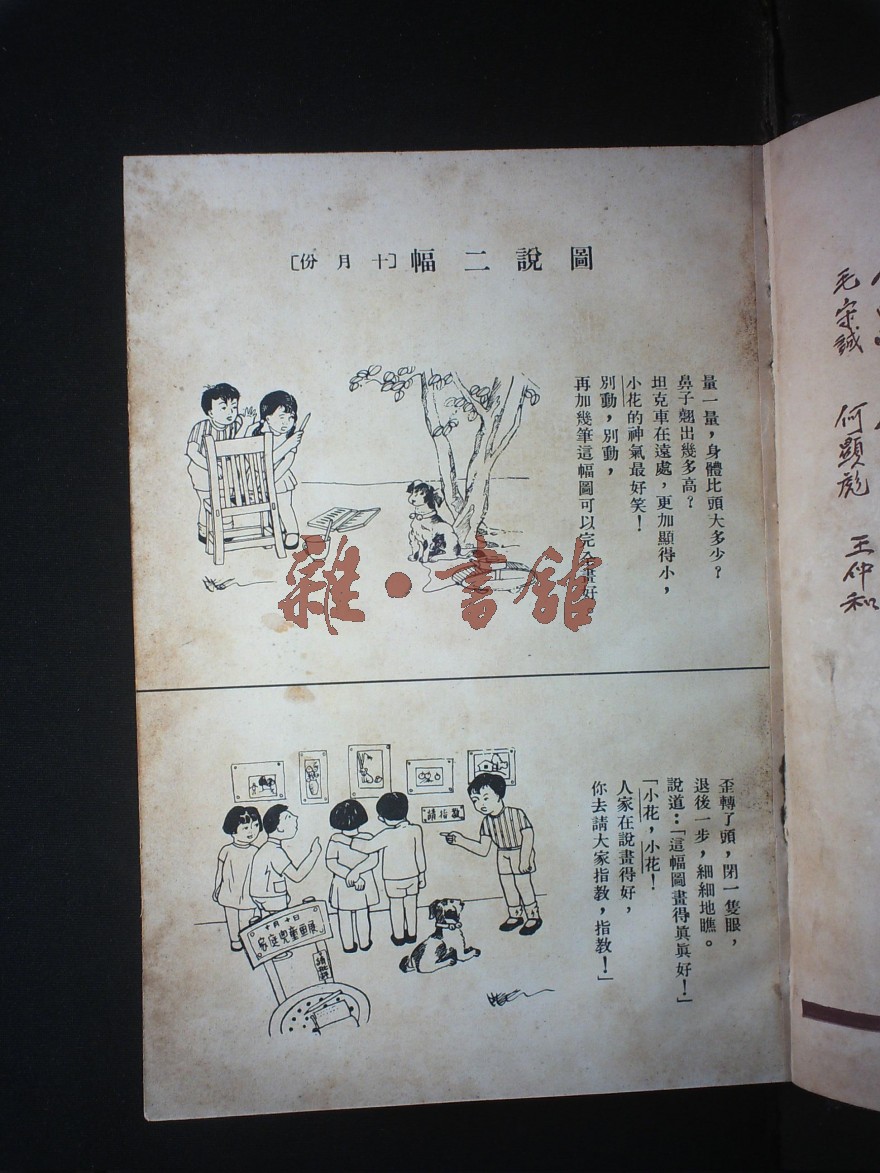 圖說二幅〔十月份〕
量一量，身體比頭大多少？
鼻子翹出幾多高？
坦克車在遠處，更加顯得小，
小花的神氣最好笑！
別動，別動，
再加幾筆這幅圖可以完全畫好
雜·書館
歪轉了頭，閉一隻眼，
退後一步，細細地瞧。
說道：「這幅圖畫得眞眞好！」
「小花，小花！
人家在說畫得好，
你去請大家指教，指教！」
請指敎
十月十日
家庭兒童畫展
毛宗誠
何顯彪
王仲和